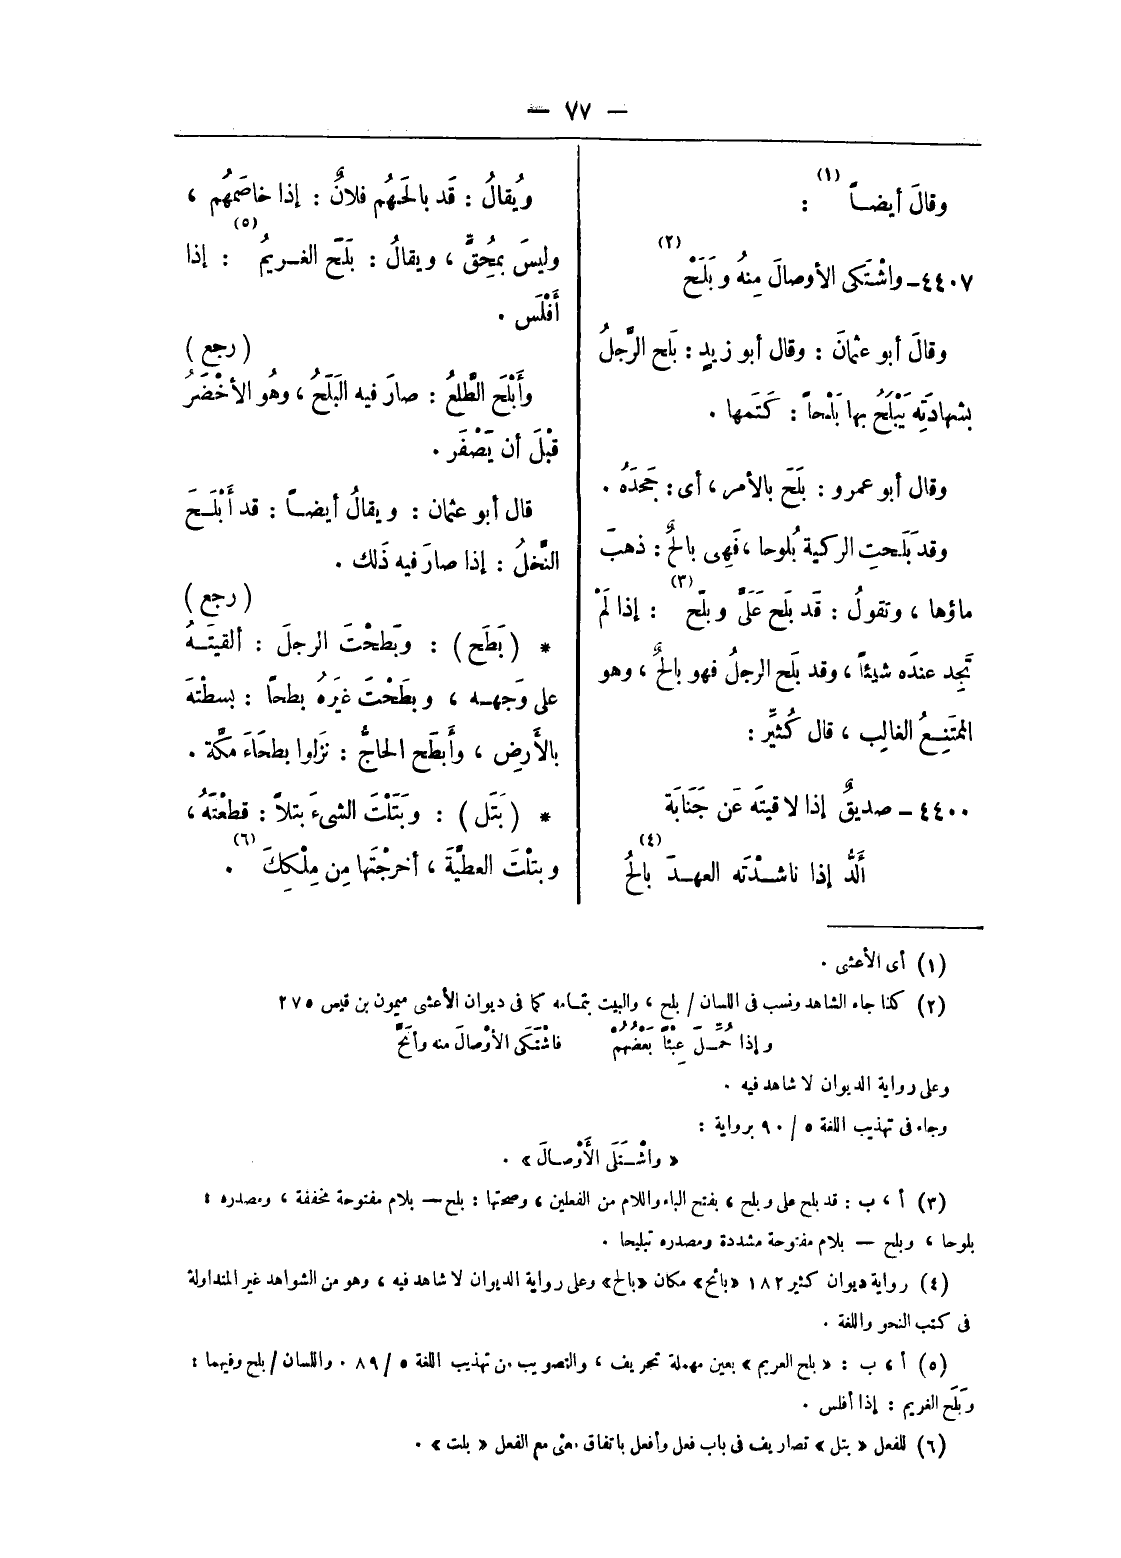 — ٧٧ —
وقالَ أيضـاً (١) :
٤٤٠٧ـ واشْتَكى الأوصالَ مِنهُ وبَلَحْ (٢)
وقالَ أبو عثمانَ : وقال أبو زيدٍ : بَلح الرَّجلُ
بشهادَتِه يَبْلَحُ بها بَلْحاً : كَتَمها .
وقال أبو عمرو : بَلَحَ بالأمر ، أى : جَحَدَهُ .
وقد بَلَـحتِ الركية بُلوحا ، فَهِى بالحٌ : ذهبَ
ماؤها ، وتقولُ : قَد بَلَح عَلَىَّ وبلَّح (٣) : إذا لَمْ
تَجِد عندَه شيئاً ، وقد بلَح الرجلُ فهو بالحٌ ، وهو
الممتَنِـعُ الغالِب ، قال كُثيِّر :
٤٤٠٠ ـ صديقٌ إذا لاقيتَه عَن جَنَابَة
أَلَدُّ إذا ناشـدْتَه العهـدَ بالحُ (٤)
ويُقالُ : قَد بالَحَهُم فلانٌ : إذا خاصَمهُم ،
وليسَ بمُحِقٍّ ، ويقالُ : بَلَّح الغـريمُ (٥) : إذا
أَفْلَس .
(رجع)
وأَبْلَح الطَّلعُ : صارَ فيه البَلَحُ ، وهُو الأخْضَرُ
قبْلَ أن يَصْفَر .
قال أبو عثمان : ويقالُ أيضـاً : قد أَبْلَـحَ
النَّخلُ : إذا صارَ فيه ذَلك .
(رجع)
* (بَطَح) : وبَطحْتَ الرجلَ : ألقيتَـهُ
على وَجهـه ، وبطَحْتَ غيَرهُ بطحًا : بسطْتهَ
بالأَرضِ ، وأَبطَح الحاجُّ : نَزلوا بطحَاءَ مكَّة .
* (بَتَل) : وبَتَلْتَ الشىءَ بتلاً : قطعْتَهُ ،
وبتلْتَ العطيَّةَ ، أخرجْتَها مِن مِلْكِكَ (٦) .
(١) أى الأعشى .
(٢) كذا جاء الشاهد ونسب فى اللسان / بلح ، والبيت بتمامه كما فى ديوان الأعشى ميمون بن قيس ٢٧٥
وإذا حُمِّـلَ عِبْئاً بَعْضُهُمْ فاشْتَكَى الأوْصالَ منه وأنَحَّ
وعلى رواية الديوان لا شاهد فيه .
وجاء فى تهذيب اللغة ٥ / ٩٠ برواية :
« واشْـتَلَى الأَوْصـالَ » .
(٣) أ ، ب : قد بلح على وبلح ، بفتح الباء واللام من الفعلين ، وصحتها : بلح — بلام مفتوحة مخففة ، ومصدره :
بلوحا ، وبلح — بلام مفتوحة مشددة ومصدره تبليحا .
(٤) رواية ديوان كثير ١٨٢ «بائح» مكان «بالح» وعلى رواية الديوان لا شاهد فيه ، وهو من الشواهد غير المتداولة
فى كتب النحو واللغة .
(٥) أ ، ب : « بلح العريم » بعين مهملة تحريف ، والتصويب من تهذيب اللغة ٥ / ٨٩ . واللسان / بلح وفيهما :
وَبَلَّح الغريم : إذا أفلس .
(٦) للفعل « بتل » تصاريف فى باب فعل وأفعل باتفاق معنى مع الفعل « بلت » .